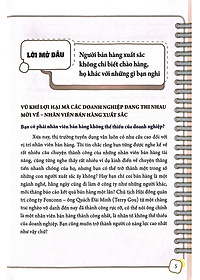 LỜI MỞ ĐẦU
Người bán hàng xuất sắc
không chỉ biết chào hàng,
họ khác với những gì bạn nghĩ
VŨ KHÍ LỢI HẠI MÀ CÁC DOANH NGHIỆP ĐANG THI NHAU
MỜI VỀ - NHÂN VIÊN BÁN HÀNG XUẤT SẮC
Bạn có phải nhân viên bán hàng không thể thiếu của doanh nghiệp?
Xưa nay, thị trường tuyển dụng vẫn luôn có nhu cầu cao đối với
vị trí nhân viên bán hàng. Tôi tin chắc rằng bạn từng được nghe không
ít câu chuyện về thành công của những nhân viên bán hàng tài
năng, cũng như biết được rất nhiều ví dụ kinh điển về chuyện thăng
tiến nhanh chóng của họ, nhưng bạn có thể trở thành một trong số
những con người xuất sắc ấy không? Hay bạn chỉ coi bán hàng là một
ngành nghề, hàng ngày cũng đi làm ở công ty như những người khác,
mỗi tháng báo cáo kết quả bán hàng một lần? Chủ tịch Hội đồng quản
trị công ty Foxconn - ông Quách Đài Minh (Terry Gou) từ một chàng
trai nghèo vô danh đến nay đã thành công rực rỡ, có thể nói, ông chính
là nhân viên bán hàng thành công nhất, là nhân tố không thể thiếu của
doanh nghiệp. Bạn cũng muốn trở thành người có năng lực cao nhất
như vậy chứ?
5